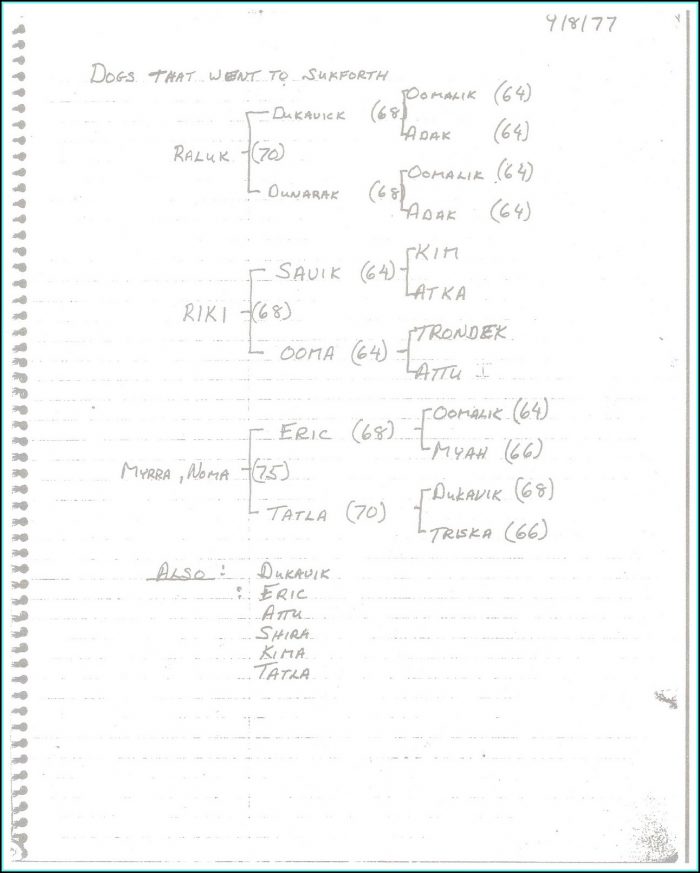 4/8/77
DOGS THAT WENT TO SUKFORTH
OOMALIK (64)
DUKAVICK (68)
ADAK (64)
RALUK (70)
OOMALIK (64)
DUNARAK (68)
ADAK (64)
KIM
SAVIK (64)
ATKA
RIKI (68)
TRONDEK
OOMA (64)
ATTU I
OOMALIK (64)
ERIC (68)
MYAH (66)
MYRRA, NOMA (75)
DUKAVIK (68)
TATLA (70)
TRISKA (66)
ALSO : DUKAVIK
: ERIC
ATTU
SHIRA
KIMA
TATLA